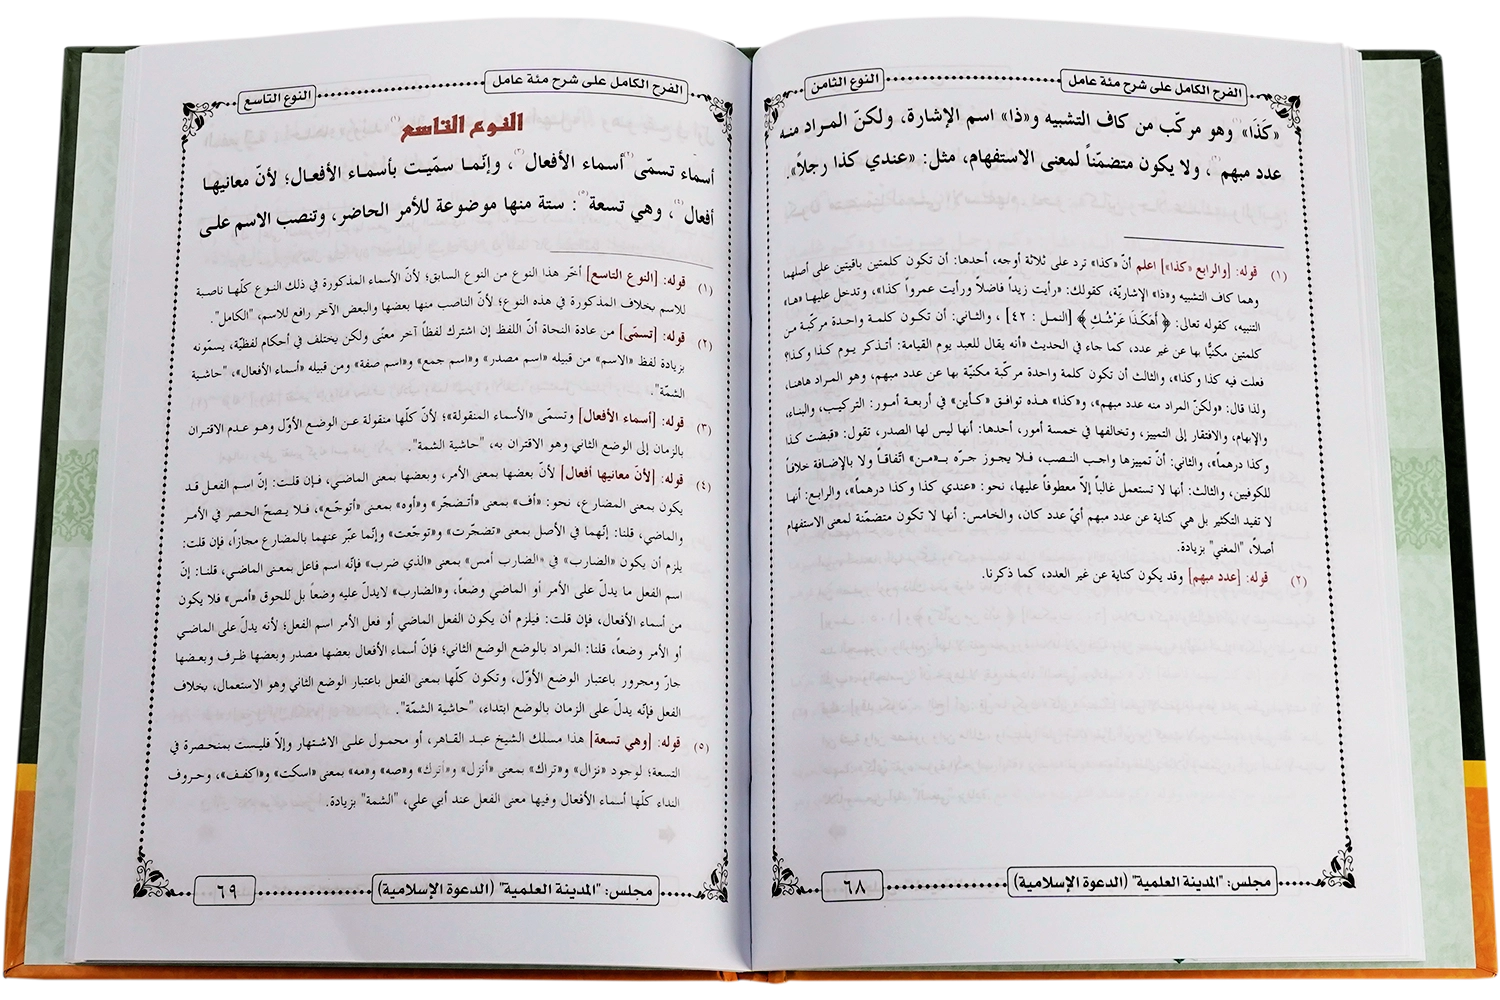 الفرح الكامل على شرح مئة عامل
النوع الثامن
«كَذَا»(١) وهو مركّب من كاف التشبيه و«ذا» اسم الإشارة، ولكنّ المراد منه
عدد مبهم(٢)، ولا يكون متضمّناً لمعنى الاستفهام، مثل: «عندي كذا رجلاً».
(١) قوله: [والرابع «كذا»] اعلم أنّ «كذا» ترد على ثلاثة أوجه، أحدها: أن تكون كلمتين باقيتين على أصلهما
وهما كاف التشبيه و«ذا» الإشاريّة، كقولك: «رأيت زيدا فاضلاً ورأيت عمرواً كذا»، وتدخل عليها «ها»
التنبيه، كقوله تعالى: ﴿ أَهَكَذَا عَرْشُكِ ﴾ [النمل : ٤٢] ، والثاني: أن تكون كلمة واحدة مركّبة من
كلمتين مكنيًّا بها عن غير عدد، كما جاء في الحديث «أنه يقال للعبد يوم القيامة: أتذكر يوم كذا وكذا؟
فعلت فيه كذا وكذا»، والثالث أن تكون كلمة واحدة مركّبة مكنيّة بها عن عدد مبهم، وهو المراد هاهنا،
ولذا قال: «ولكنّ المراد منه عدد مبهم»، و«كذا» هذه توافق «كأين» في أربعة أمور: التركيب، والبناء،
والإبهام، والافتقار إلى التمييز، وتخالفها في خمسة أمور، أحدها: أنها ليس لها الصدر، تقول: «قبضت كذا
وكذا درهماً»، والثاني: أنّ تمييزها واجب النصب، فلا يجوز جرّه بـ«من» اتّفاقاً ولا بالإضافة خلافاً
للكوفيين، والثالث: أنها لا تستعمل غالباً إلاّ معطوفاً عليها، نحو: «عندي كذا وكذا درهماً»، والرابع: أنها
لا تفيد التكثير بل هي كناية عن عدد مبهم أيّ عدد كان، والخامس: أنها لا تكون متضمّنة لمعنى الاستفهام
أصلاً، "المغني" بزيادة.
(٢) قوله: [عدد مبهم] وقد يكون كناية عن غير العدد، كما ذكرنا.
مجلس: "المدينة العلمية" (الدعوة الإسلامية)
٦٨
الفرح الكامل على شرح مئة عامل
النوع التاسع
النوع التاسع(١)
أسماء تسمّى(٢) أسماء الأفعال(٣)، وإنّما سمّيت بأسماء الأفعال؛ لأنّ معانيها
أفعال(٤)، وهي تسعة(٥): ستة منها موضوعة للأمر الحاضر، وتنصب الاسم على
(١) قوله: [النوع التاسع] أخّر هذا النوع من النوع السابق؛ لأنّ الأسماء المذكورة في ذلك النوع كلّها ناصبة
للاسم بخلاف المذكورة في هذه النوع؛ لأنّ الناصب منها بعضها والبعض الآخر رافع للاسم، "الكامل".
(٢) قوله: [تسمّى] من عادة النحاة أنّ اللفظ إن اشترك لفظاً آخر معنًى ولكن يختلف في أحكام لفظيّة، يسمّونه
بزيادة لفظ «الاسم» من قبيله «اسم مصدر» و«اسم جمع» و«اسم صفة» ومن قبيله «أسماء الأفعال»، "حاشية
الشمّة".
(٣) قوله: [أسماء الأفعال] وتسمّى «الأسماء المنقولة»؛ لأنّ كلّها منقولة عن الوضع الأوّل وهو عدم الاقتران
بالزمان إلى الوضع الثاني وهو الاقتران به، "حاشية الشمة".
(٤) قوله: [لأنّ معانيها أفعال] لأنّ بعضها بمعنى الأمر، وبعضها بمعنى الماضي، فإن قلت: إنّ اسم الفعل قد
يكون بمعنى المضارع، نحو: «أف» بمعنى «أتضجّر» و«أوه» بمعنى «أتوجّع»، فلا يصحّ الحصر في الأمر
والماضي، قلنا: إنّهما في الأصل بمعنى «تضجّرت» و«توجّعت» وإنّما عبّر عنهما بالمضارع مجازاً، فإن قلت:
يلزم أن يكون «الضارب» في «الضارب أمس» بمعنى «الذي ضرب» فإنّه اسم فاعل بمعنى الماضي، قلنا: إنّ
اسم الفعل ما يدلّ على الأمر أو الماضي وضعاً، و«الضارب» لايدلّ عليه وضعاً بل للحوق «أمس» فلا يكون
من أسماء الأفعال، فإن قلت: فيلزم أن يكون الفعل الماضي أو فعل الأمر اسم الفعل؛ لأنه يدلّ على الماضي
أو الأمر وضعاً، قلنا: المراد بالوضع الوضع الثاني؛ فإنّ أسماء الأفعال بعضها مصدر وبعضها ظرف وبعضها
جارّ ومجرور باعتبار الوضع الأوّل، وتكون كلّها بمعنى الفعل باعتبار الوضع الثاني وهو الاستعمال، بخلاف
الفعل فإنّه يدلّ على الزمان بالوضع ابتداء، "حاشية الشمّة".
(٥) قوله: [وهي تسعة] هذا مسلك الشيخ عبد القاهر، أو محمول على الاشتهار وإلاّ فليست بمنحصرة في
التسعة؛ لوجود «نزال» و«تراك» بمعنى «أنزل» و«أترك» و«صه» و«مه» بمعنى «اسكت» و«اكفف»، وحروف
النداء كلّها أسماء الأفعال وفيها معنى الفعل عند أبي علي، "الشمة" بزيادة.
مجلس: "المدينة العلمية" (الدعوة الإسلامية)
٦٩